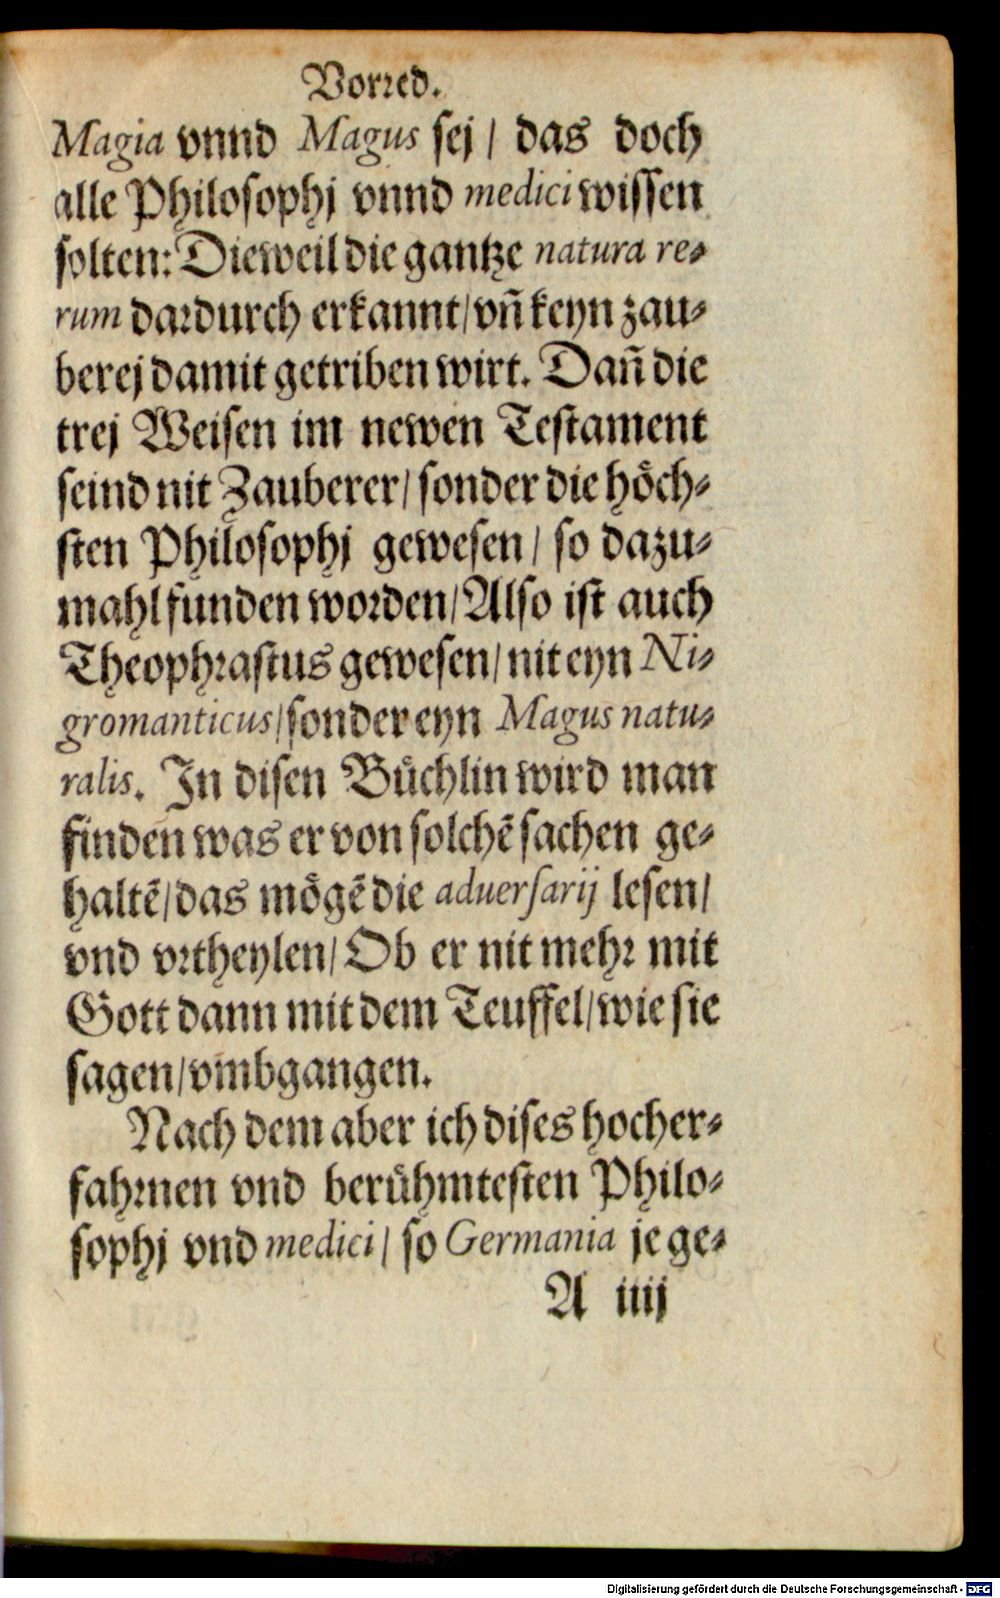 Vorred.
Magia vnnd Magus sej / das doch
alle Philosophj vnnd medici wissen
solten: Dieweil die gantze natura re⸗
rum dardurch erkannt / vn̄ keyn zau⸗
berej damit getriben wirt. Dan̄ die
trej Weisen im newen Testament
seind nit Zauberer / sonder die hoͤch⸗
sten Philosophj gewesen / so dazu⸗
mahl funden worden / Also ist auch
Theophrastus gewesen / nit eyn Ni⸗
gromanticus / sonder eyn Magus natu⸗
ralis. In disen Buͤchlin wird man
finden was er von solchē sachen ge⸗
haltē / das moͤgē die aduersarij lesen /
vnd vrtheylen / Ob er nit mehr mit
Gott dann mit dem Teuffel / wie sie
sagen / vmbgangen.
Nach dem aber ich dises hocher⸗
fahrnen vnd beruͤhmtesten Philo⸗
sophj vnd medici / so Germania je ge⸗
A iiij
Digitalisierung gefördert durch die Deutsche Forschungsgemeinschaft - DFG